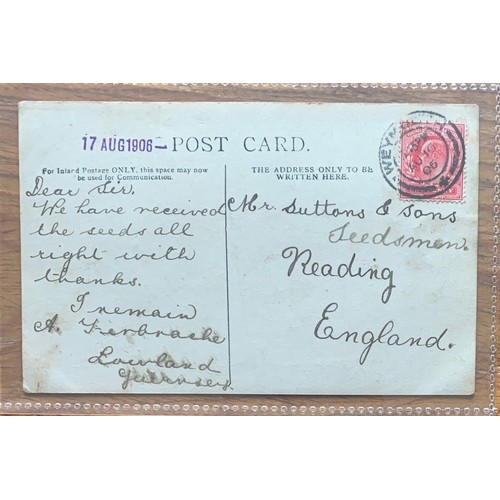 17 AUG1906 — POST CARD.
For Inland Postage ONLY, this space may now
be used for Communication.
THE ADDRESS ONLY TO BE
WRITTEN HERE.
Dear Sir.
We have received
the seeds all
right with
thanks.
I remain
A. Firbrache
Lowland
Guernsey.
Mr. Suttons & Sons
Seedsmen.
Reading
England.
WEYM
06